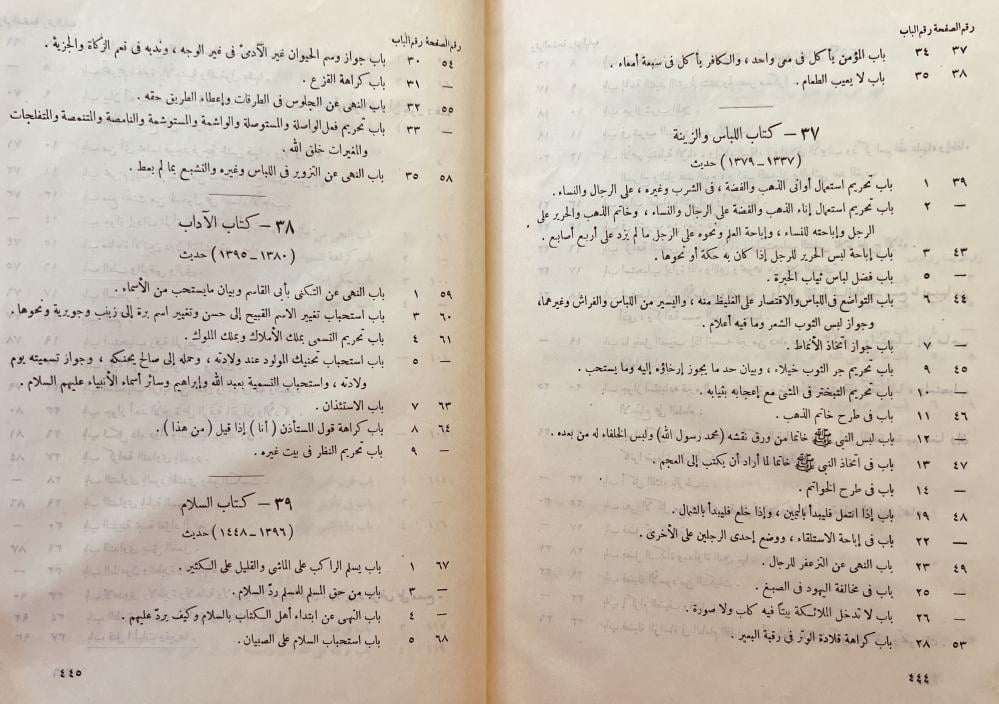 رقم الصفحة رقم الباب
٣٧ ٣٤ باب المؤمن يأكل فى معى واحد ، والكافر يأكل فى سبعة أمعاء .
٣٨ ٣٥ باب لا يعيب الطعام .
٣٧ – كتاب اللباس والزينة
(١٣٣٧ – ١٣٧٩) حديث
٣٩ ١ باب تحريم استعمال أوانى الذهب والفضة ، فى الشرب وغيره ، على الرجال والنساء .
— ٢ باب تحريم استعمال إناء الذهب والفضة على الرجال والنساء ، وخاتم الذهب والحرير على
الرجل وإباحته للنساء ، وإباحة العلم ونحوه على الرجل ما لم يزد على أربع أصابع .
٤٣ ٣ باب إباحة لبس الحرير للرجل إذا كان به حكة أو نحوها .
— ٥ باب فضل لباس ثياب الحبرة .
٤٤ ٦ باب التواضع فى اللباس والاقتصار على الغليظ منه ، واليسير من اللباس والفراش وغيرهما،
وجواز لبس الثوب الشعر وما فيه أعلام .
— ٧ باب جواز اتخاذ الأنماط .
٤٥ ٩ باب تحريم جر الثوب خيلاء ، وبيان حد ما يجوز إرخاؤه إليه وما يستحب .
— ١٠ باب تحريم التبختر فى المشى مع إعجابه بثيابه .
٤٦ ١١ باب فى طرح خاتم الذهب .
— ١٢ باب لبس النبي ﷺ خاتما من ورق نقشه (محمد رسول الله) ولبس الخلفاء له من بعده .
٤٧ ١٣ باب فى اتخاذ النبي ﷺ خاتما لما أراد أن يكتب إلى العجم .
— ١٤ باب فى طرح الخواتم .
٤٨ ١٩ باب إذا انتعل فليبدأ باليمين ، وإذا خلع فليبدأ بالشمال .
— ٢٢ باب فى إباحة الاستلقاء ، ووضع إحدى الرجلين على الأخرى .
٤٩ ٢٣ باب النهى عن التزعفر للرجال .
— ٢٥ باب فى مخالفة اليهود فى الصبغ .
— ٢٦ باب لا تدخل الملائكة بيتًا فيه كلب ولا صورة .
٥٣ ٢٨ باب كراهة قلادة الوتر فى رقبة البعير .
٤٤٤
رقم الصفحة رقم الباب
٥٤ ٣٠ باب جواز وسم الحيوان غير الآدمىّ فى غير الوجه ، وندبه فى نعم الزكاة والجزية .
— ٣١ باب كراهة القزع .
٥٥ ٣٢ باب النهى عن الجلوس فى الطرقات وإعطاء الطريق حقه .
— ٣٣ باب تحريم فعل الواصلة والمستوصلة والواشمة والمستوشمة والنامصة والمتنمصة والمتفلجات
والمغيرات خلق الله .
٥٨ ٣٥ باب النهى عن التزوير فى اللباس وغيره والتشبع بما لم يعط .
٣٨ – كتاب الآداب
(١٣٨٠ – ١٣٩٥) حديث
٥٩ ١ باب النهى عن التكنى بأبى القاسم وبيان مايستحب من الأسماء .
٦٠ ٣ باب استحباب تغيير الاسم القبيح إلى حسن وتغيير اسم برة إلى زينب وجويرية ونحوها .
٦١ ٤ باب تحريم التسمى بملك الأملاك وبملك الملوك .
— ٥ باب استحباب تحنيك المولود عند ولادته ، وحمله إلى صالح يحنكه ، وجواز تسميته يوم
ولادته ، واستحباب التسمية بعبد الله وإبراهيم وسائر أسماء الأنبياء عليهم السلام .
٦٣ ٧ باب الاستئذان .
٦٤ ٨ باب كراهة قول المستأذن ( أنا ) إذا قيل ( من هذا ) .
— ٩ باب تحريم النظر فى بيت غيره .
٣٩ – كتاب السلام
(١٣٩٦ – ١٤٤٨) حديث
٦٧ ١ باب يسلم الراكب على الماشى والقليل على الكثير .
— ٣ باب من حق المسلم للمسلم ردّ السلام .
— ٤ باب النهى عن ابتداء أهل الكتاب بالسلام وكيف يردّ عليهم .
٦٨ ٥ باب استحباب السلام على الصبيان .
٤٤٥